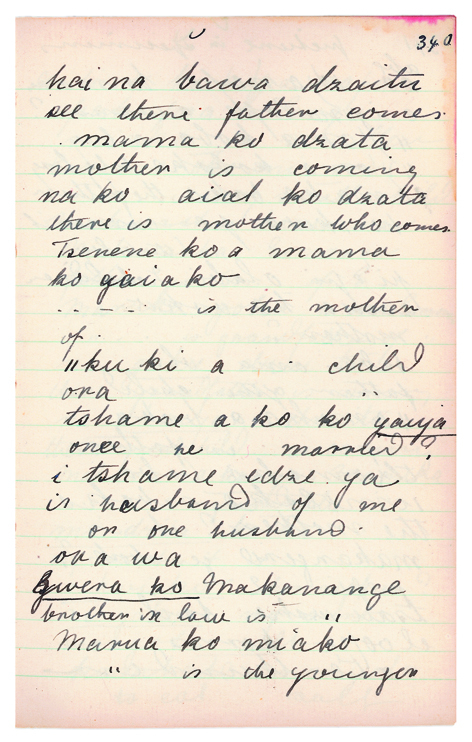 340
hai na bawa dzaitu
see there father comes.
mama ko dzata
mother is coming
na ko aial ko dzata
there is mother who comes.
Tserene ko a mama
ko gaiako
.. — — . is the mother
of.
"ku ki a . child
ora "
tshame a ko ko yaiya
once he married?
i tshame edze ya
is husband of me
or one husband.
ora wa
Gwera ko Makanange
brother in law is "
Marua ko miako
" is the younger